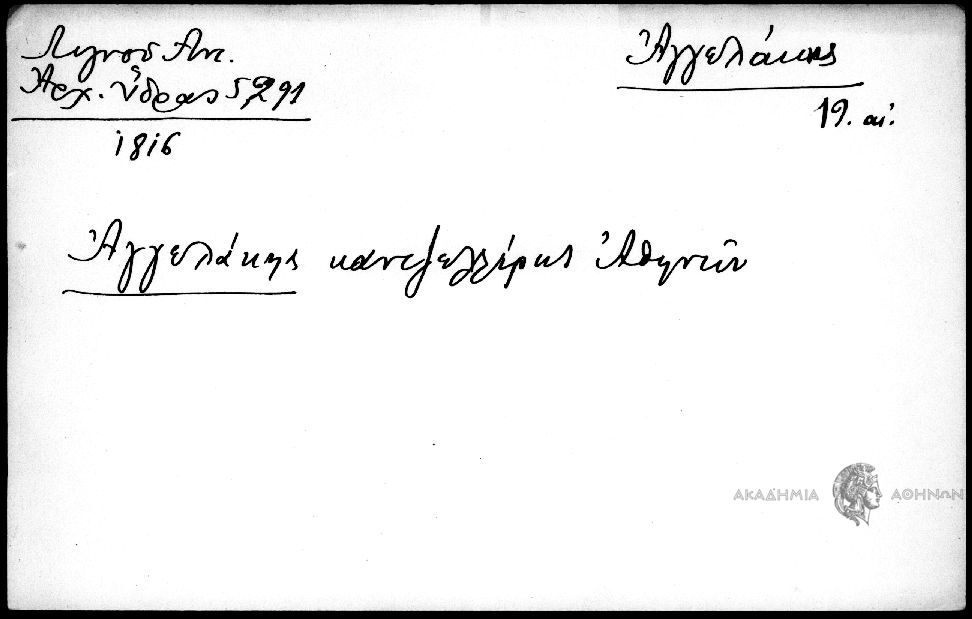 Λιγνού Αντ.
Ἀρχ. Ὕδρας 5, 291
1816
Ἀγγελάκης
19. αἰ.
Ἀγγελάκης καντζελλιέρης Ἀθηνῶν
ΑΚΑΔΗΜΙΑ ΑΘΗΝΩΝ